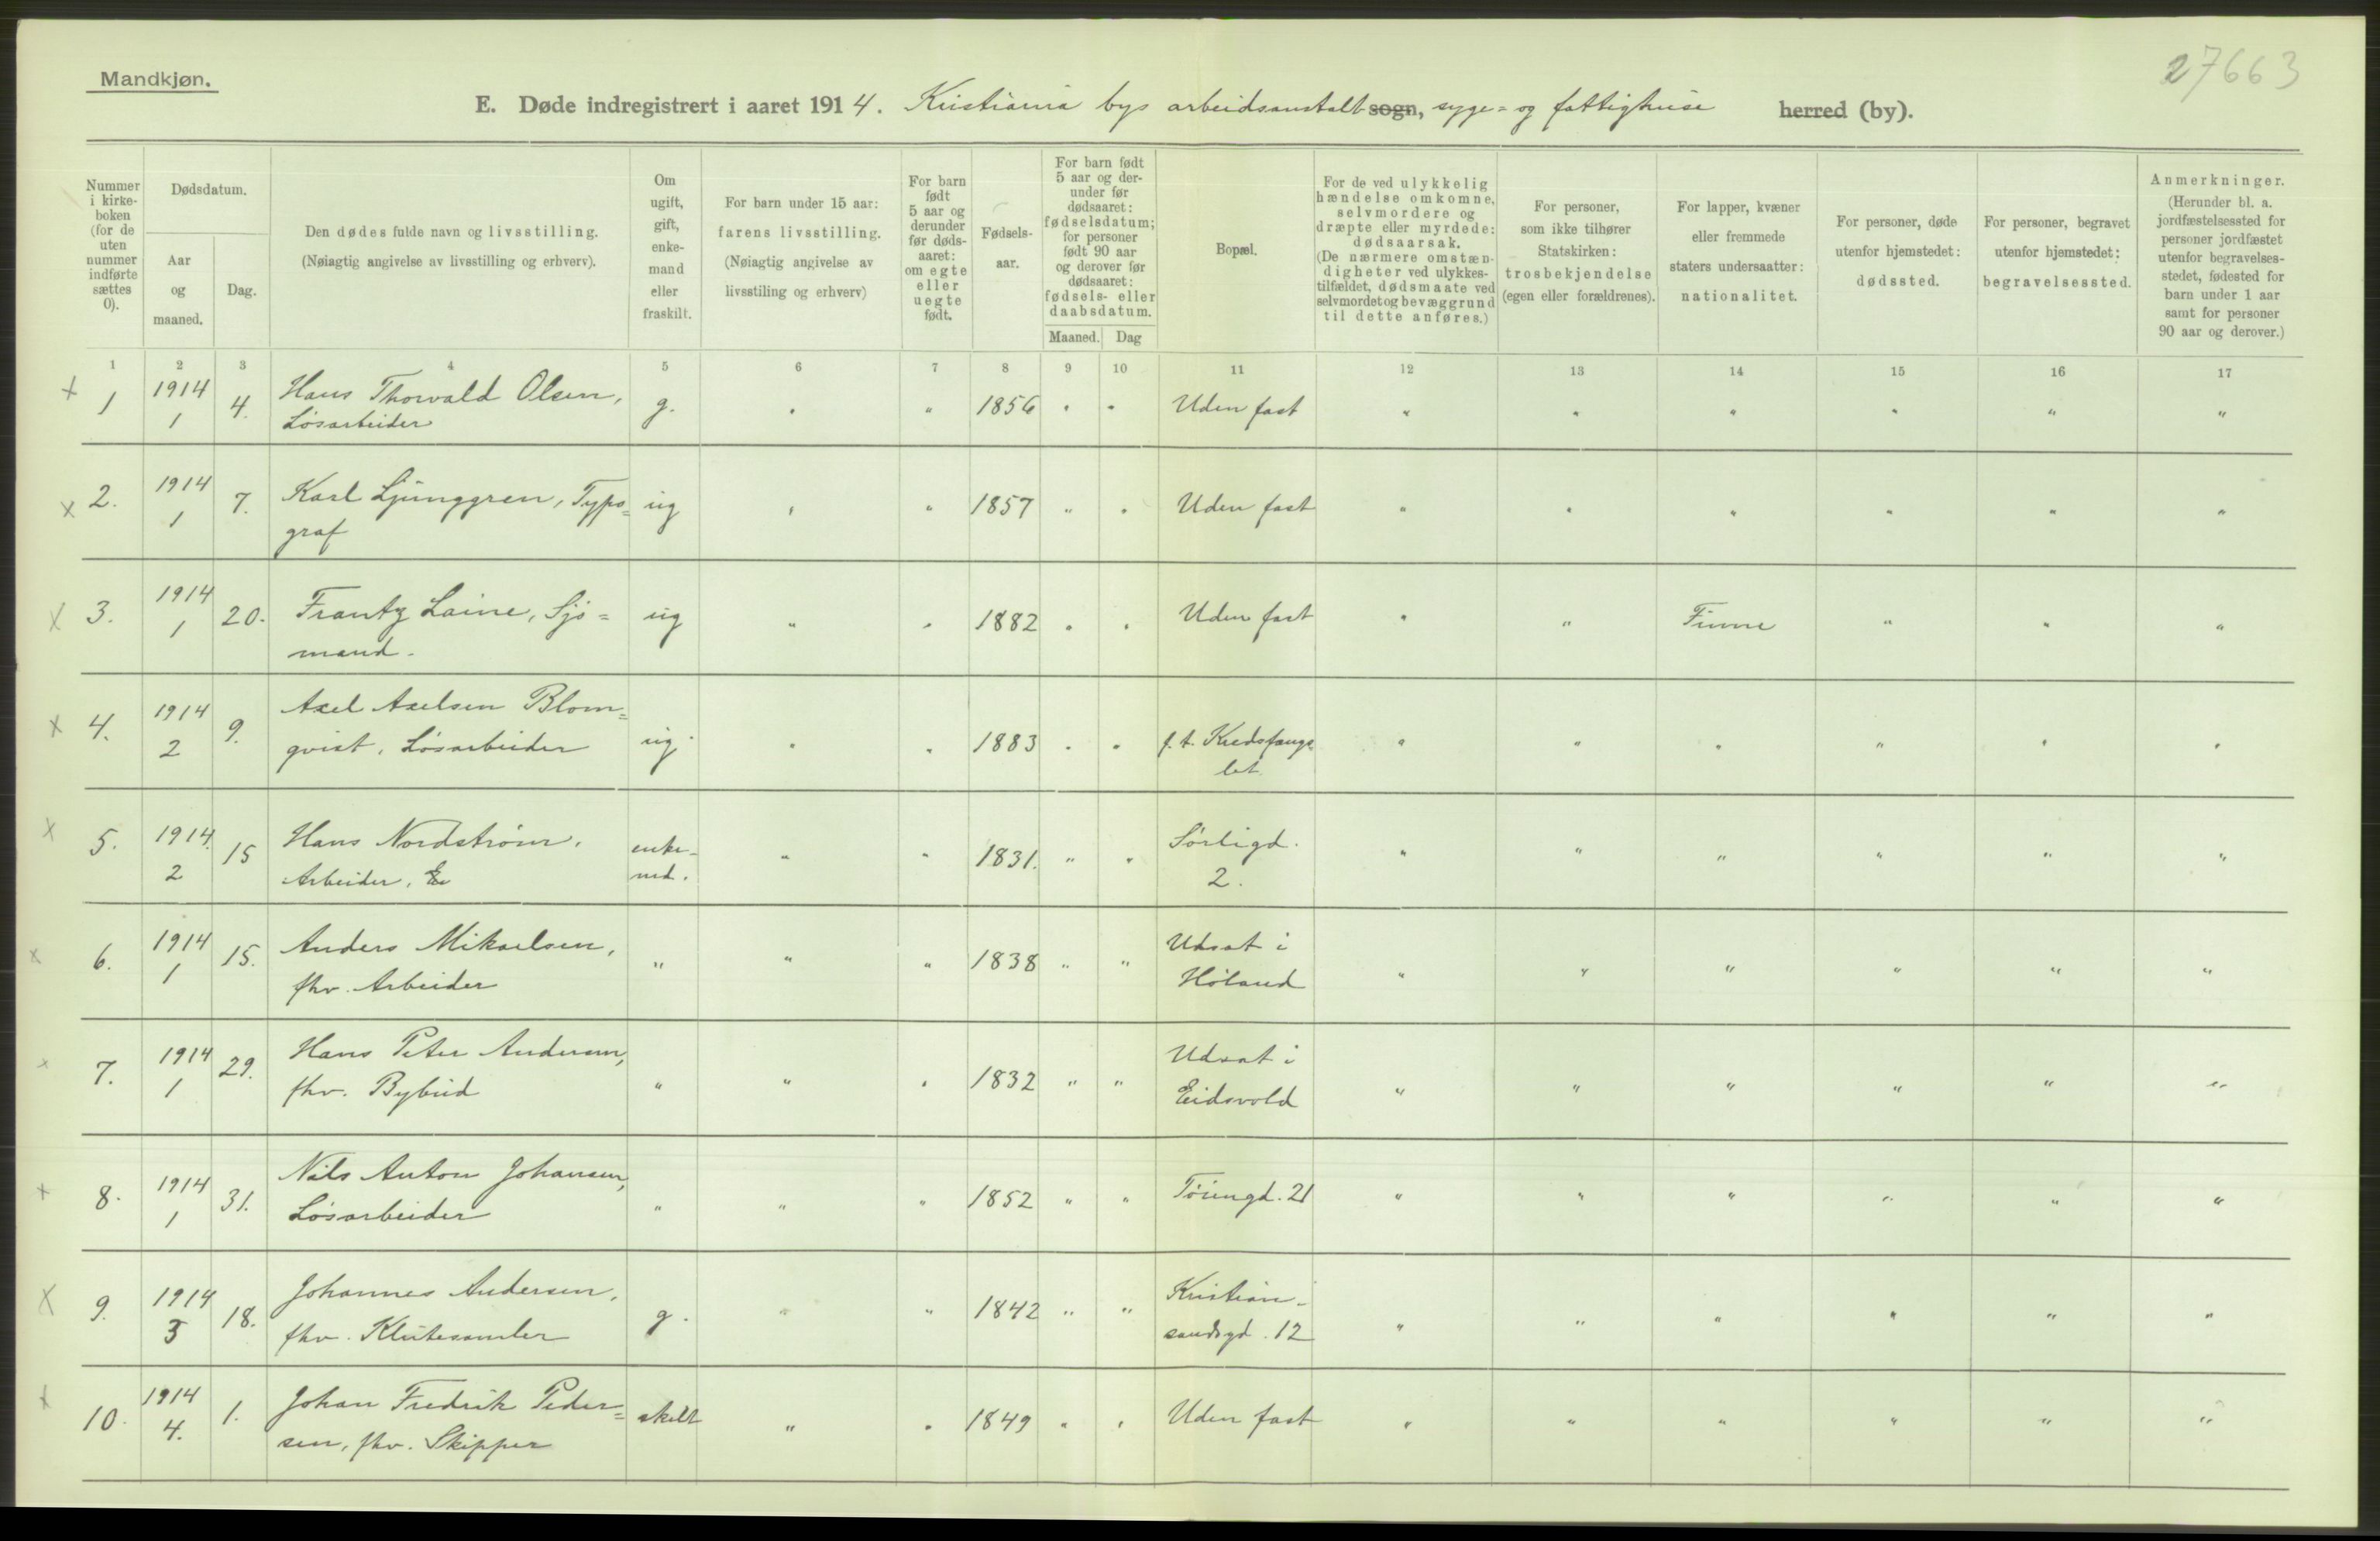 27663
Mandkjøn.
E. Døde indregistrert i aaret 1914. Kristiania bys arbeidsanstalt sogn, syge- og fattighuse herred (by).
Nummer i kirke-boken (for de uten nummer indførte sættes 0).
Dødsdatum.
Aar og maaned.
Dag.
Den dødes fulde navn og livsstilling.
(Nøiagtig angivelse av livsstilling og erhverv).
Om ugift, gift, enke-mand eller fraskilt.
For barn under 15 aar: farens livsstilling.
(Nøiagtig angivelse av livsstiling og erhverv)
For barn født 5 aar og derunder før døds-aaret: om egte eller uegte født.
Fødsels-aar.
For barn født 5 aar og der-under før dødsaaret: fødselsdatum; for personer født 90 aar og derover før dødsaaret: fødsels- eller daabsdatum.
Maaned. Dag
Bopæl.
For de ved ulykkelig hændelse omkomne, selvmordere og dræpte eller myrdede: dødsaarsak.
(De nærmere omstæn-digheter ved ulykkes-tilfældet, dødsmaate ved selvmordet og bevæggrund til dette anføres.)
For personer, som ikke tilhører Statskirken: trosbekjendelse (egen eller forældrenes).
For lapper, kvæner eller fremmede staters undersaatter: nationalitet.
For personer, døde utenfor hjemstedet: dødssted.
For personer, begravet utenfor hjemstedet: begravelsessted.
Anmerkninger.
(Herunder bl. a. jordfæstelsessted for personer jordfæstet utenfor begravelses-stedet, fødested for barn under 1 aar samt for personer 90 aar og derover.)
1 2 3 4 5 6 7 8 9 10 11 12 13 14 15 16 17
x 1 1914 4. Hans Thorvald Olsen, g. " " 1856 " " Uden fast " " " " " "
1 Løsarbeider
x 2. 1914 7. Karl Ljünggren, Typo= ug " " 1857 " " Uden fast " " " " " "
1 graf
x 3. 1914 20. Frantz Laine, Sjø= ug " " 1882 " " Uden fast " " Finne " " "
1 mand.
x 4. 1914 9. Axel Axelsen Blom= ug. " " 1883 " " f. t. Kredsfængs " " " " " "
2 qvist, Løsarbeider let
x 5. 1914. 15 Hans Nordstrøm, enke- " " 1831. " " Sørligd. " " " " " "
2 Arbeider, md. 2.
x 6. 1914 15. Anders Mikaelsen, " " " 1838 " " Udsat i " " " " " "
1 fhv. Arbeider Høland
x 7. 1914 29. Hans Peter Andersen, " " " 1832 " " Udsat i " " " " " "
1 fhv. Bybud Eidsvold
x 8. 1914 31. Nils Anton Johansen, " " " 1852 " " Tøiengd. 21 " " " " " "
1 Løsarbeider
x 9. 1914 18. Johannes Andersen, g. " " 1842 " " Kristian- " " " " " "
3 fhv. Klutesamler sandsgd. 12
x 10. 1914 1. Johan Fredrik Peder= skilt " " 1849 " " Uden fast " " " " " "
4. sen, fhv. Skipper